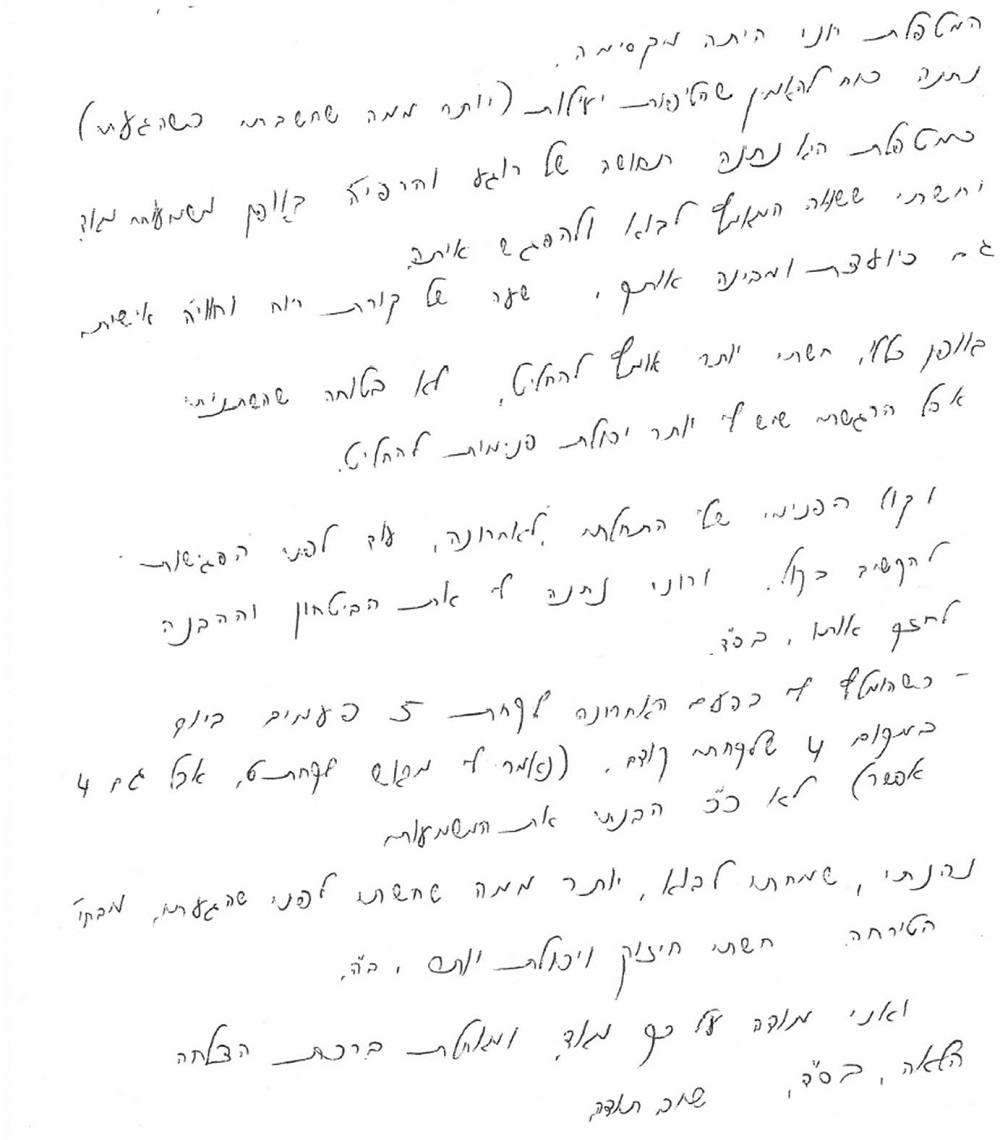 המטפלת רוני היתה מקסימה.
נתנה כוח להאמין שהטיפות יעילות (יותר ממה שחשבתי כשהגעתי)
כמטפלת היא נתנה תחושה של רוגע והרפיה באופן משמעותי מאוד
וחשתי ששווה המאמץ לבוא ולהפגש איתה.
גם כיועצת ומבינה אותך, שער של קורת רוח וחוויה אישית
באופן כללי, חשתי יותר אומץ להחליט, לא בטוחה שהשתניתי
אבל הרגשתי שיש לי יותר יכולת פנימית להחליט.
וקולי הפנימי שלי התחלתי לאחרונה, עוד לפני הפגישות
להקשיב בקול. ורוני נתנה לי את הביטחון וההבנה
לחזק אותו, בס"ד.
- כשהומלץ לי בפעם האחרונה לקחת 5 פעמים ביום
במקום 4 שלקחתי קודם. (נאמר לי מראש לקחת 6, אבל גם 4
אפשר) לא כ"כ הבנתי את המשמעות
נהנתי, שמחתי לבוא, יותר ממה שחשתי לפני שהגעתי,
הטירחה. חשתי חיזוק ויכולת יותר, ב"ה.
ואני מודה על כך מאוד, ומאחלת ברכת הצלחה
הלאה, בס"ד, שוב תודה